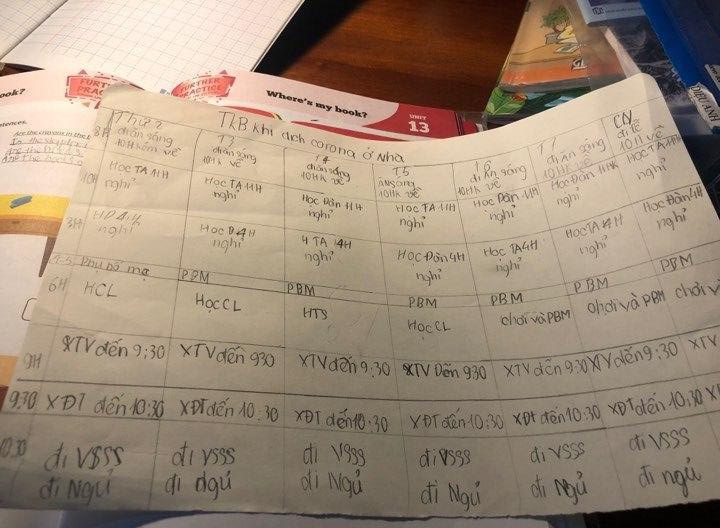 ook?
FURTHER PRACTICE
FURTHER PRACTICE
Where's my book?
UNIT 13
DIỆU ANH
entences.
Are the
TKB khi dịch corona ở nhà
8H
Thứ 2 đi ăn sáng 10H kém về
T3 đi ăn sáng 10H về
T4 đi ăn sáng 10H về
T5 ăn sáng 10H về
T6 đi ăn sáng 10H về
T7 đi ăn sáng 10H về
CN đi lễ 10H về
10H
Học TA 11H nghỉ
Học TA 11H nghỉ
Học Đàn 11H nghỉ
Học TA 11H nghỉ
Học Đàn 11H nghỉ
Học Đàn 11H nghỉ
Học TA 11H nghỉ
3H
HĐ 4H nghỉ
Học Đ 4H nghỉ
H TA 4H nghỉ
Học Đàn 4H nghỉ
Học TA 4H nghỉ
Học TA 4H nghỉ
Học Đàn 4H nghỉ
Phụ bố mẹ
PBM
PBM
PBM
PBM
PBM
PBM
6H
HCL
Học CL
HTS
Học CL
chơi và PBM
chơi và PBM
chơi và
9H
XTV đến 9:30
XTV đến 930
XTV đến 9:30
XTV Đến 930
XTV đến 9:30
XTV đến 9:30
XTV
9.30
XĐT đến 10:30
XĐT đến 10:30
XĐT đến 10:30
XĐT đến 10:30
XĐT đến 10:30
XĐT đến 10:30
10:30
đi VSSS
đi VSSS
đi VSSS
đi VSSS
đi VSSS
đi VSSS
đi Ngủ
đi ngủ
đi Ngủ
đi Ngủ
đi Ngủ
đi ngủ